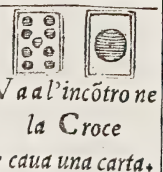 Va a l'incõtro ne
la Croce
e caua una carta.